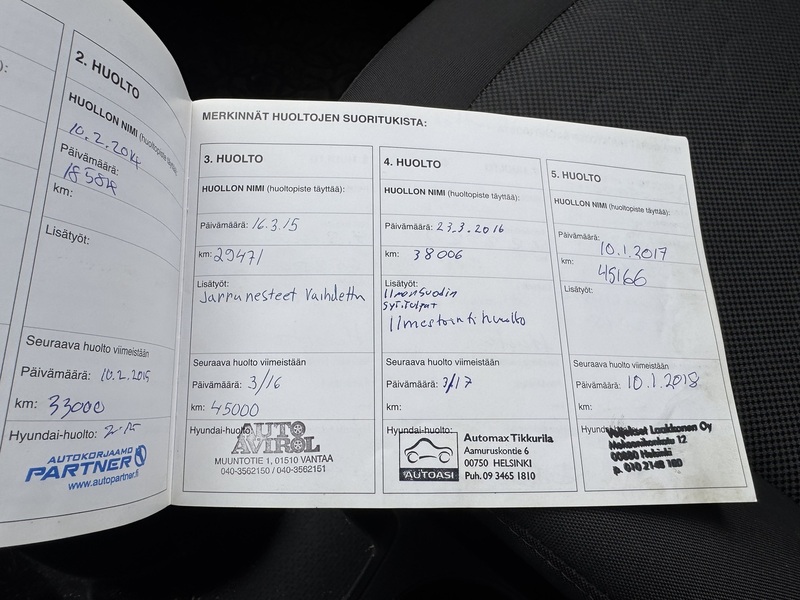 2. HUOLTO
HUOLLON NIMI (huoltopiste täyttää):
10.2.2014
Päivämäärä:
18584
km:
Lisätyöt:
Seuraava huolto viimeistään
Päivämäärä: 10.2.2015
km: 33000
Hyundai-huolto: 2-15
AUTOKORJAAMO
PARTNER
www.autopartner.fi
MERKINNÄT HUOLTOJEN SUORITUKISTA:
3. HUOLTO
HUOLLON NIMI (huoltopiste täyttää):
Päivämäärä: 16.3.15
km: 29471
Lisätyöt:
Jarrunesteet Vaihdettu
Seuraava huolto viimeistään
Päivämäärä: 3/16
km: 45000
Hyundai-huolto:
AUTO
AVIROL
MUUNTOTIE 1, 01510 VANTAA
040-3562150 / 040-3562151
4. HUOLTO
HUOLLON NIMI (huoltopiste täyttää):
Päivämäärä: 23.3.2016
km: 38006
Lisätyöt:
Ilmansuodin
Syt.Tulpat
Ilmastointihuolto
Seuraava huolto viimeistään
Päivämäärä: 3/17
km:
Hyundai-huolto:
AUTOASI
Automax Tikkurila
Aamuruskontie 6
00750 HELSINKI
Puh. 09 3465 1810
5. HUOLTO
HUOLLON NIMI (huoltopiste täyttää):
Päivämäärä:
10.1.2017
km:
45166
Lisätyöt:
Seuraava huolto viimeistään
Päivämäärä: 10.1.2018
km:
Veljekset Laakkonen Oy
12
00880 Helsinki
p. 010 2148 180